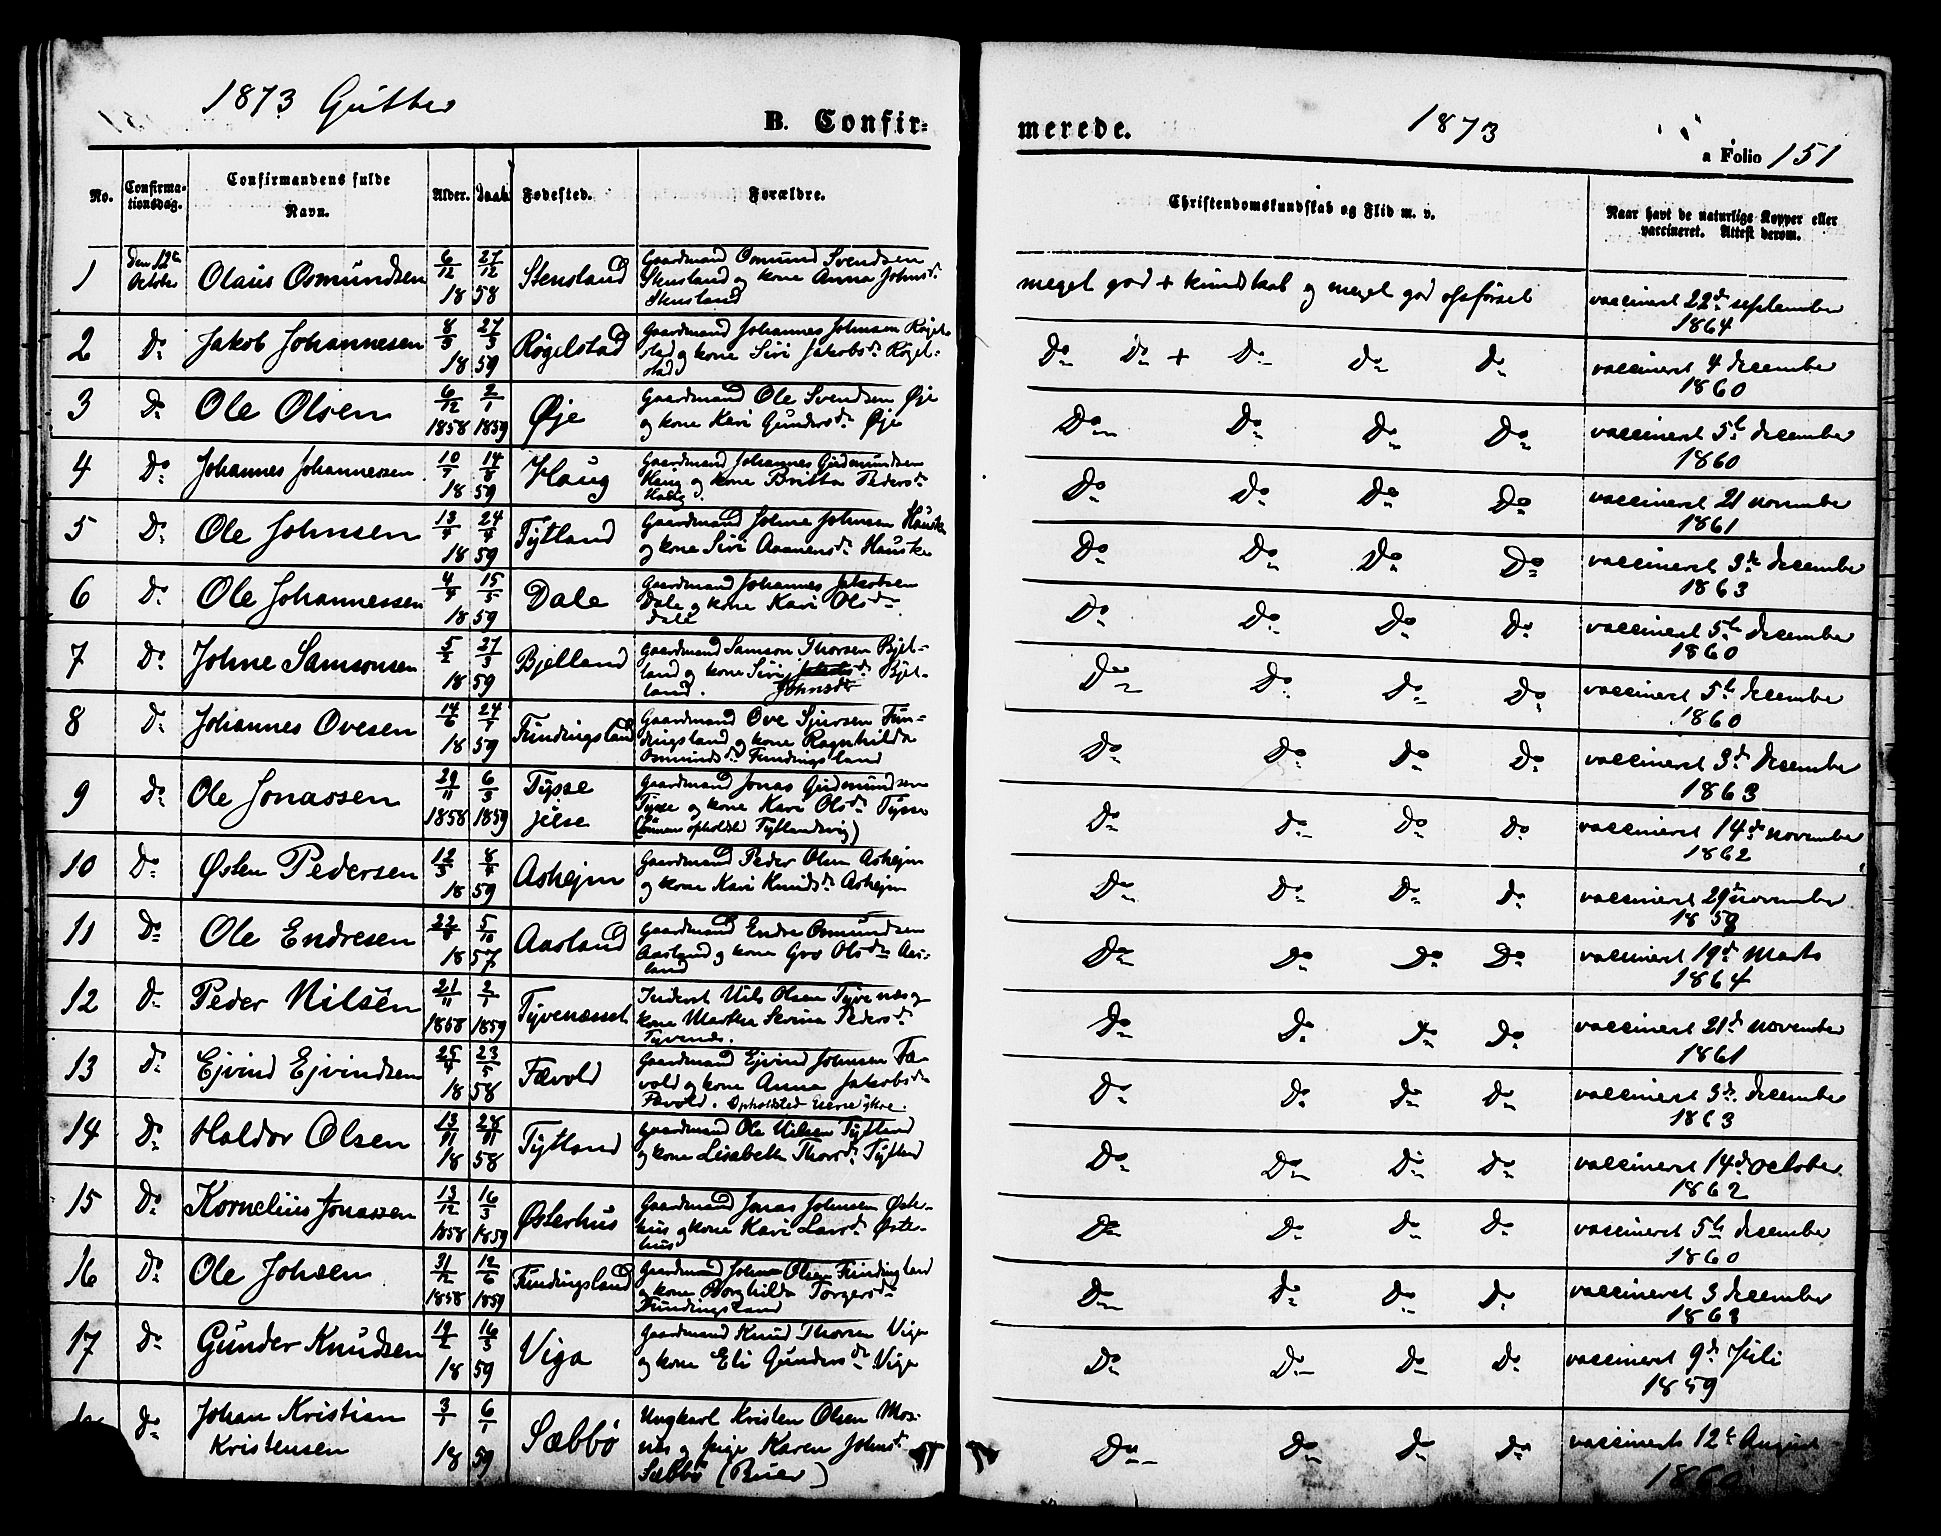 1873 Gutter
B. Confir-
merede.
1873
a Folio 151
No.
Confirma-
tionsdag.
Confirmandens fulde
Navn.
Alder.
Daab
Fødested.
Forældre.
Christendomskundskab og Flid m. v.
Naar havt de naturlige Kopper eller
vaccineret. Attest derom.
1 Den 12te October Olaus Osmundsen 6/12 27/12 1858 Stensland Gaardmand Osmund Svendsen
Stensland og kone Anna Johnsd.
Stensland
meget god + kundskab og meget god opførsel vaccineret 22d september
1864
2 Do Jakob Johannesen 8/5 27/5 1859 Røgelstad Gaardmand Johannes Johnsen Røgel-
stad og kone Siri Jakobsdr Røgel-
stad
Do Do + Do Do Do vaccineret 4 december
1860
3 Do Ole Olsen 6/12 1858 2/1 1859 Øje Gaardmand Ole Svendsen Øje
og kone Kari Gundersdr Øje
Do Do Do Do vaccineret 5te december
1860
4 Do Johannes Johannessen 10/7 14/8 1859 Haug Gaardmand Johannes Gudmundsen
Haug og kone Britta Pedersdr
Haug.
Do Do Do Do vaccineret 21 november
1861
5 Do Ole Johnsen 13/4 24/4 1859 Tytland Gaardmand Johne Johnsen Hauske
og kone Siri Aanensdr Hauske
Do Do Do Do vaccineret 3de december
1863
6 Do Ole Johannessen 4/4 15/5 1859 Dale Gaardmand Johannes Jakobsen
Dale og kone Kari Olsdr
Dale
Do Do Do Do vaccineret 5te december
1860
7 Do Johne Samsonsen 5/2 27/3 1859 Bjelland Gaardmand Samson Thorsen Bjel-
land og kone Siri Jakobsdr Bjel-
land. Johnsdr
Do Do Do Do vaccineret 5te december
1860
8 Do Johannes Ovesen 14/6 24/7 1859 Fundingsland Gaardmand Ove Sjursen Fun-
dingsland og kone Ragnhilda
Osmundsdr Fundingsland
Do Do Do Do vaccineret 3d december
1863
9 Do Ole Jonassen 29/11 1858 6/3 1859 Tysse
jelse Gaardmand Jonas Gudmundsen
Tysse og kone Kari Olsdr Tysse
(Sønnens opholdsted Tytlandsvig)
Do Do Do Do vaccineret 14de november
1862
10 Do Østen Pedersen 12/3 8/4 1859 Ashejm Gaardmand Peder Olsen Ashejm
og kone Kari Knudsdr Ashejm
Do Do Do Do vaccineret 29de november
1859
11 Do Ole Endresen 22/8 5/10 1857 Aasland Gaardmand Endre Osmundsen
Aasland og kone Gro Olsdr Aas-
land
Do Do Do Do vaccineret 19d Marts
1864
12 Do Peder Nilsen 21/11 1858 2/1 1859 Tyvenæsset Inderst Nils Olsen Tyvenæs og
kone Martha Serina Pedersdr
Tyvenæs.
Do Do Do Do vaccineret 21d november
1861
13 Do Ejvind Ejvindsen 25/4 23/5 1858 Fævold Gaardmand Ejvind Johnsen Fæ-
vold og kone Anna Jakobsdr
Fævold. Opholdsted
Do Do Do Do vaccineret 3de december
1863
14 Do Haldor Olsen 13/11 28/11 1858 Tytland gaardmand Ole Nilsen Tytland
og kone Lisabeth Thorsdr Tytland
Do Do Do Do vaccineret 14d October
1862
15 Do Kornelius Jonassen 13/12 1858 16/3 1859 Østerhus Gaardmand Jonas Johnsen Øster-
hus og kone Kari Larsdr Øster-
hus
Do Do Do Do vaccineret 5te december
1860
16 Do Ole Johsen 31/12 1858 12/6 1859 Fundingsland Gaardmand John Olsen Fundingsland
og kone Borghilda Torgersdr
Fundingsland
Do Do Do Do vaccineret 3 december
1863
17 Do Gunder Knudsen 19/2 16/3 1859 Viga Gaardmand Knud Thorsen Viga
og kone Eli Gundersdr Viga
Do Do Do Do vaccineret 9d Juli
1859
Do Johan Kristian
Kristensen 3/1 6/1 1859 Sæbbø Ungkarl Kristen Olsen Mos-
næs og pige Karen Johnsdr
Sæbbø (Buer)
Do Do Do Do vaccineret 12te August
1860